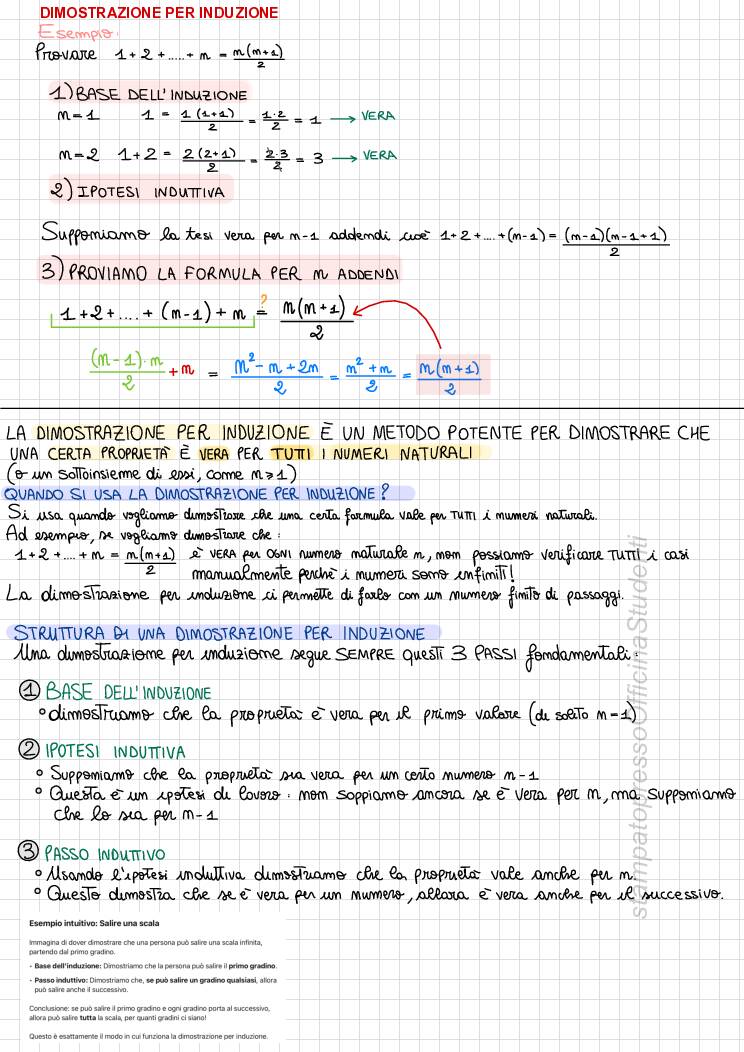 DIMOSTRAZIONE PER INDUZIONE
Esempio:
Provare 1+2+.....+n = n(n+1)/2
1) BASE DELL'INDUZIONE
n=1 1 = 1(1+1)/2 = 1·2/2 = 1 → VERA
n=2 1+2 = 2(2+1)/2 = 2·3/2 = 3 → VERA
2) IPOTESI INDUTTIVA
Supponiamo la tesi vera per n-1 addendi cioè 1+2+....+(n-1) = (n-1)(n-1+1)/2
3) PROVIAMO LA FORMULA PER n ADDENDI
1+2+....+(n-1)+n =? n(n+1)/2
(n-1)·n/2 +n = n²-n+2n/2 = n²+n/2 = n(n+1)/2
LA DIMOSTRAZIONE PER INDUZIONE È UN METODO POTENTE PER DIMOSTRARE CHE
UNA CERTA PROPRIETÀ È VERA PER TUTTI I NUMERI NATURALI
(o un sottoinsieme di essi, come n≥1)
QUANDO SI USA LA DIMOSTRAZIONE PER INDUZIONE?
Si usa quando vogliamo dimostrare che una certa formula vale per TUTTI i numeri naturali.
Ad esempio, se vogliamo dimostrare che:
1+2+....+n = n(n+1)/2 è VERA per OGNI numero naturale n, non possiamo verificare TUTTI i casi
manualmente perché i numeri sono infiniti!
La dimostrazione per induzione ci permette di farlo con un numero finito di passaggi.
STRUTTURA DI UNA DIMOSTRAZIONE PER INDUZIONE
Una dimostrazione per induzione segue SEMPRE questi 3 PASSI fondamentali:
1 BASE DELL'INDUZIONE
° dimostriamo che la proprietà è vera per il primo valore (di solito n=1)
2 IPOTESI INDUTTIVA
° Supponiamo che la proprietà sia vera per un certo numero n-1
° Questa è un ipotesi di lavoro: non sappiamo ancora se è vera per n, ma supponiamo
che lo sia per n-1
3 PASSO INDUTTIVO
° Usando l'ipotesi induttiva dimostriamo che la proprietà vale anche per n.
° Questo dimostra che se è vera per un numero, allora è vera anche per il successivo.
stampatopressoOfficinaStudenti
Esempio intuitivo: Salire una scala
Immagina di dover dimostrare che una persona può salire una scala infinita,
partendo dal primo gradino.
• Base dell'induzione: Dimostriamo che la persona può salire il primo gradino.
• Passo induttivo: Dimostriamo che, se può salire un gradino qualsiasi, allora
può salire anche il successivo.
Conclusione: se può salire il primo gradino e ogni gradino porta al successivo,
allora può salire tutta la scala, per quanti gradini ci siano!
Questo è esattamente il modo in cui funziona la dimostrazione per induzione.